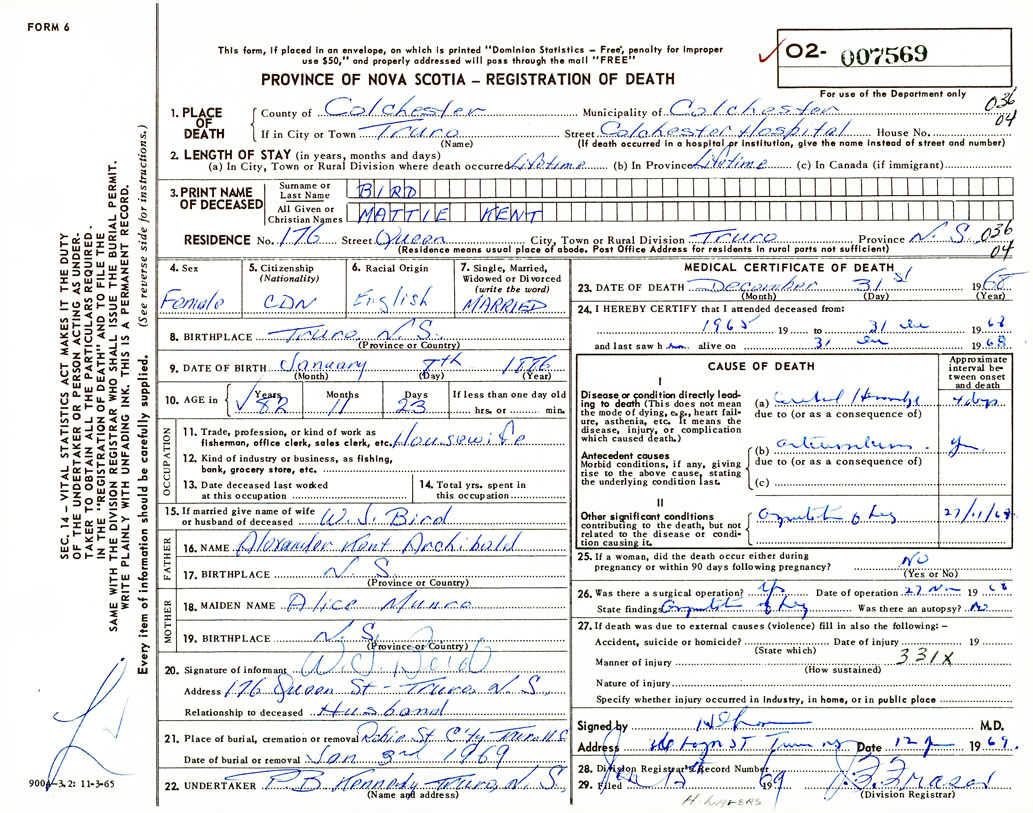 FORM 6
This form, if placed in an envelope, on which is printed "Dominion Statistics – Free', penalty for improper
use $50," and properly addressed will pass through the mail "FREE"
PROVINCE OF NOVA SCOTIA – REGISTRATION OF DEATH
02- 007569
For use of the Department only
036
04
1. PLACE OF DEATH
County of Colchester Municipality of Colchester
If in City or Town Truro Street Colchester Hospital House No.
(Name) (If death occurred in a hospital or institution, give the name instead of street and number)
2. LENGTH OF STAY (in years, months and days)
(a) In City, Town or Rural Division where death occurred Lifetime (b) In Province Lifetime (c) In Canada (if immigrant)
3. PRINT NAME OF DECEASED
Surname or Last Name BIRD
All Given or Christian Names MATTIE KENT
RESIDENCE No. 176 Street Queen City, Town or Rural Division Truro Province N.S. 036
(Residence means usual place of abode. Post Office Address for residents in rural parts not sufficient) 04
4. Sex Female
5. Citizenship (Nationality) CDN
6. Racial Origin English
7. Single, Married, Widowed or Divorced (write the word) MARRIED
8. BIRTHPLACE Truro, N.S.
(Province or Country)
9. DATE OF BIRTH January 8th 1886
(Month) (Day) (Year)
10. AGE in Years 82 Months 11 Days 23 If less than one day old
hrs. or min.
OCCUPATION
11. Trade, profession, or kind of work as
fisherman, office clerk, sales clerk, etc. Housewife
12. Kind of industry or business, as fishing,
bank, grocery store, etc.
13. Date deceased last worked
at this occupation
14. Total yrs. spent in
this occupation
15. If married give name of wife
or husband of deceased W.J. Bird
FATHER
16. NAME Alexander Kent Archibald
17. BIRTHPLACE N.S.
(Province or Country)
MOTHER
18. MAIDEN NAME Alice Munro
19. BIRTHPLACE N.S.
(Province or Country)
20. Signature of informant W.J. Bird
Address 176 Queen St – Truro, N.S.
Relationship to deceased Husband
21. Place of burial, cremation or removal Robie St. C'ty Truro N.S.
Date of burial or removal Jan 3rd 1969
22. UNDERTAKER P.B. Kennedy Truro, N.S.
(Name and address)
MEDICAL CERTIFICATE OF DEATH
23. DATE OF DEATH December 31st 1968
(Month) (Day) (Year)
24. I HEREBY CERTIFY that I attended deceased from:
1965 19 to 31 Dec 1968
and last saw h alive on 31 Dec 1968
CAUSE OF DEATH
Approximate interval between onset and death
I
Disease or condition directly leading to death (This does not mean the mode of dying, e.g., heart failure, asthenia, etc. It means the disease, injury, or complication which caused death.)
(a) Cerebral Hemorrhage 4 days
due to (or as a consequence of)
Antecedent causes
Morbid conditions, if any, giving rise to the above cause, stating the underlying condition last.
(b) arteriosclerosis
due to (or as a consequence of)
(c)
II
Other significant conditions
contributing to the death, but not related to the disease or condition causing it.
Amputation of leg 27/11/68
25. If a woman, did the death occur either during
pregnancy or within 90 days following pregnancy? NO
(Yes or No)
26. Was there a surgical operation? yes Date of operation 27 Nov 1968
State findings Amputation of leg Was there an autopsy? No
27. If death was due to external causes (violence) fill in also the following: –
Accident, suicide or homicide? Date of injury 19
(State which)
Manner of injury 331X
(How sustained)
Nature of injury
Specify whether injury occurred in Industry, in home, or in public place
Signed by M.D.
Address Date 12 Jan 1969.
28. Division Registrar's Record Number
29. Filed Jan 1969
(Division Registrar)
H. LAVERS
SEC. 14 – VITAL STATISTICS ACT MAKES IT THE DUTY
OF THE UNDERTAKER OR PERSON ACTING AS UNDER-
TAKER TO OBTAIN ALL THE PARTICULARS REQUIRED
IN THE "REGISTRATION OF DEATH" AND TO FILE THE
SAME WITH THE DIVISION REGISTRAR WHO SHALL ISSUE THE BURIAL PERMIT.
WRITE PLAINLY WITH UNFADING INK. THIS IS A PERMANENT RECORD.
Every item of information should be carefully supplied. (See reverse side for instructions.)
900 3.2: 11-3-65